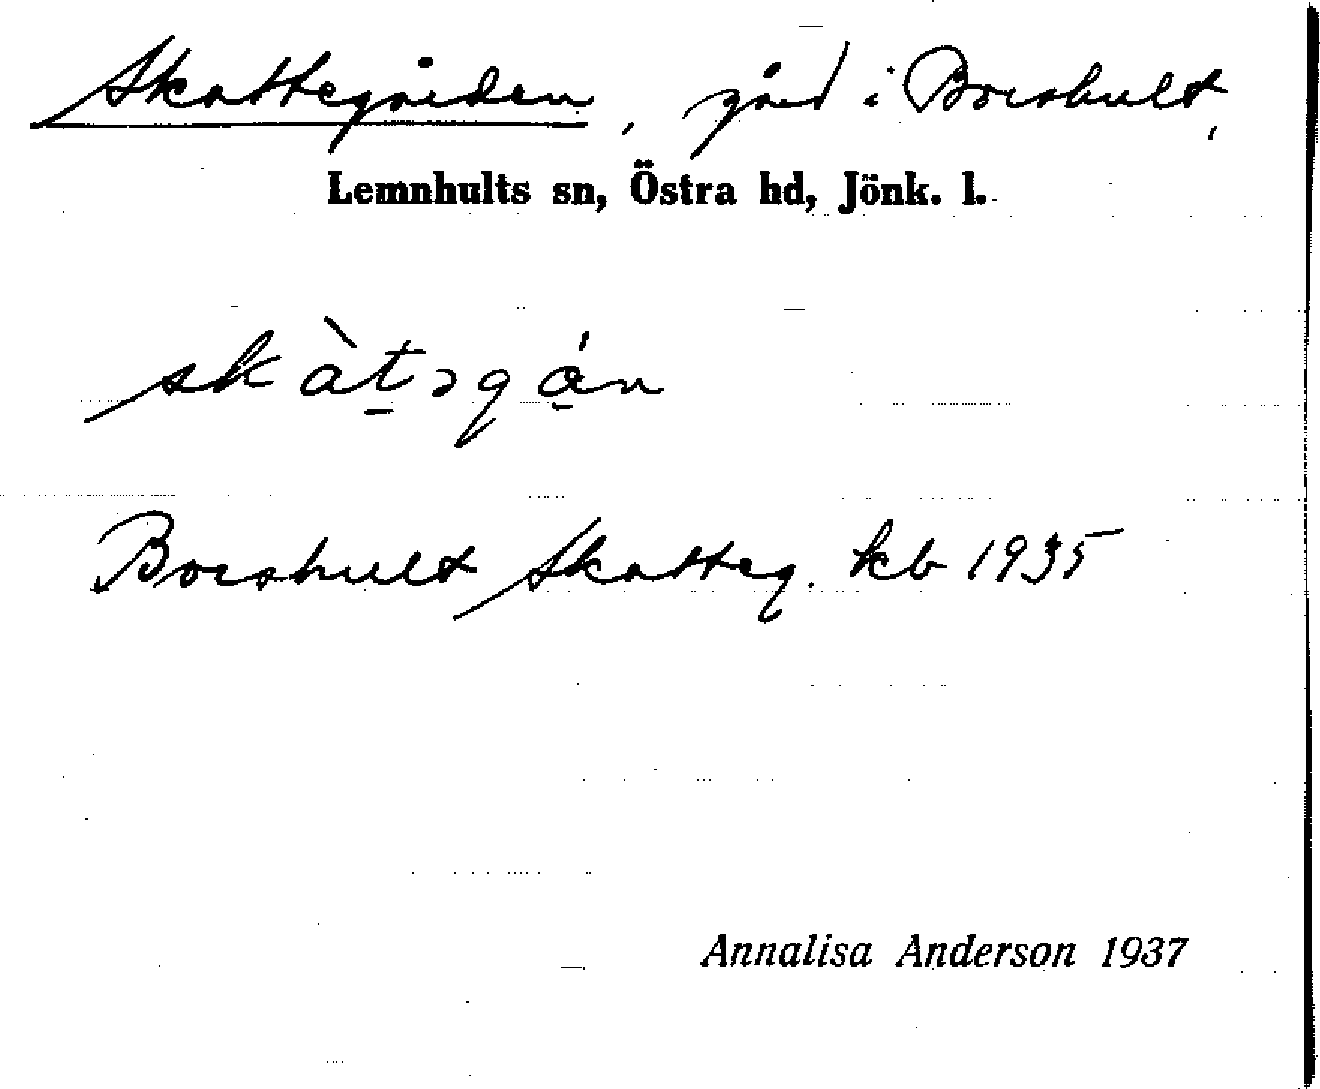 Skattegården, gård i Boershult,
Lemnhults sn, Östra hd, Jönk. l.
skàt̠əgά̣n
Boershult Skatteg. kb 1935
Annalisa Anderson 1937